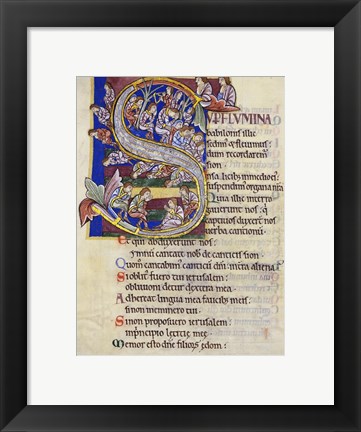 SUP FLUMINA
babilonis illic
sedim & fleuimus:
dum recordarem
sion
Insalicib; inmedio ei:
suspendim organa nra
Quia illic interro
gauerunt nos: q
captiuos duxert nos
uerba cantionu
Et qui abduxerunt nos:
ymnu cantate nob de canticis sion
Quom cantabim canticu dni: inttra aliena
Si oblit fuero tui ierusalem:
obliuioni detur dextera mea
Adhereat lingua mea faucib; meis:
si non meminero tui
Si non proposuero ierusalem:
inprincipio leticie mee
Memor esto dne filior edom: